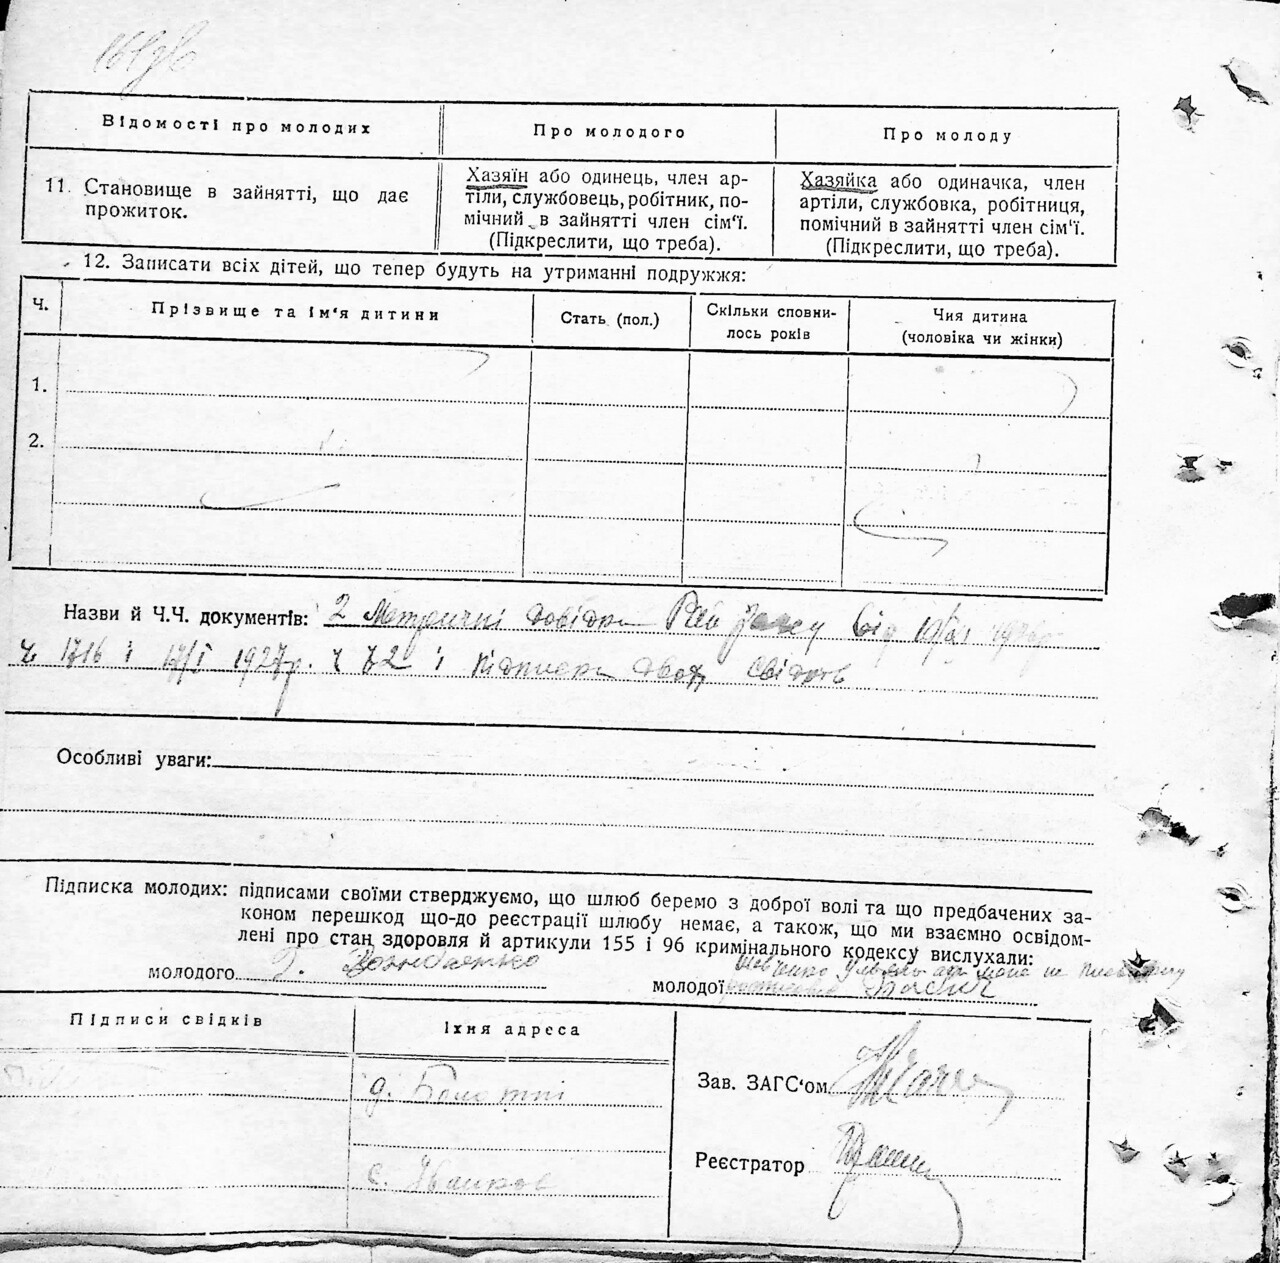 Відомості про молодих
Про молодого
Про молоду
11. Становище в зайнятті, що дає
прожиток.
Хазяїн або одинець, член ар-
тіли, службовець, робітник, по-
мічний в зайнятті член сім'ї.
(Підкреслити, що треба).
Хазяйка або одиначка, член
артіли, службовка, робітниця,
помічний в зайнятті член сім'ї.
(Підкреслити, що треба).
12. Записати всіх дітей, що тепер будуть на утриманні подружжя:
Ч.
Прізвище та ім'я дитини
Стать (пол.)
Скільки сповни-
лось років
Чия дитина
(чоловіка чи жінки)
1.
2.
Назви й Ч.Ч. документів: 2 Метричні довідки Рай від
ч 1716 і 17/I 1927р. ч 72 і підписка двох свідків
Особливі уваги:
Підписка молодих: підписами своїми стверджуємо, що шлюб беремо з доброї волі та що предбачених за-
коном перешкод що-до реєстрації шлюбу немає, а також, що ми взаємно освідом-
лені про стан здоровля й артикули 155 і 96 кримінального кодексу вислухали:
молодого
молодої
Підписи свідків
Їхня адреса
Зав. ЗАГС'ом
Реєстратор